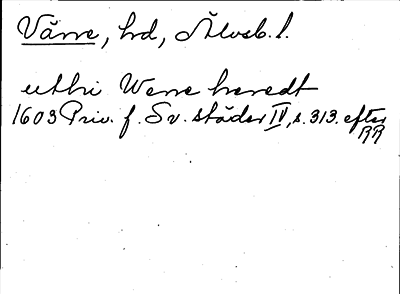 Värre, hd, Älvsb. l.
uthi Werre heredt
1603 Priv. f. Sv. städer IV, s. 313. efter
RR